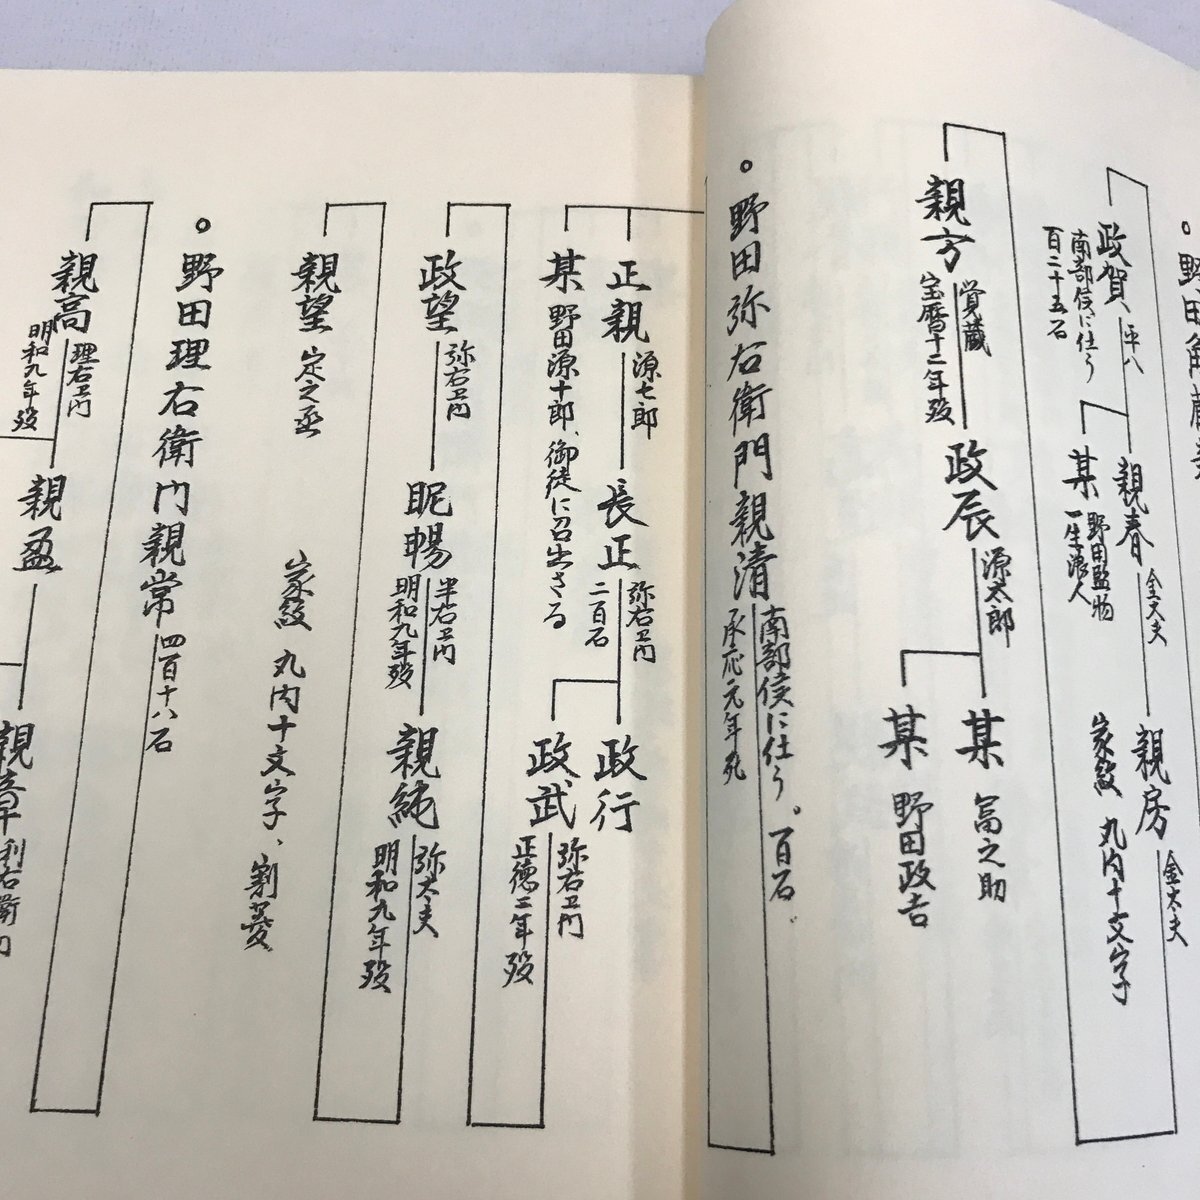 政賀
平八
南部侯に仕う
百二十五石
親春
金太夫
某
野田監物
一生浪人
親房
金太夫
家紋 丸内十文字
親方
覚蔵
宝暦十二年歿
政辰
源太郎
某 冨之助
某 野田政吉
野田弥右衛門親清
南部侯に仕う。百石
承応元年死
正親
源七郎
長正
弥右ヱ門
二百石
政行
某 野田源十郎、御徒に召出さる
政武
弥右ヱ門
正徳二年歿
政望
弥右ヱ門
昵暢
半右ヱ門
明和九年歿
親純
弥太夫
明和九年歿
親望 定之丞
家紋 丸内十文字、割菱
野田理右衛門親常 四百十八石
親高
理右ヱ門
明和九年歿
親盈